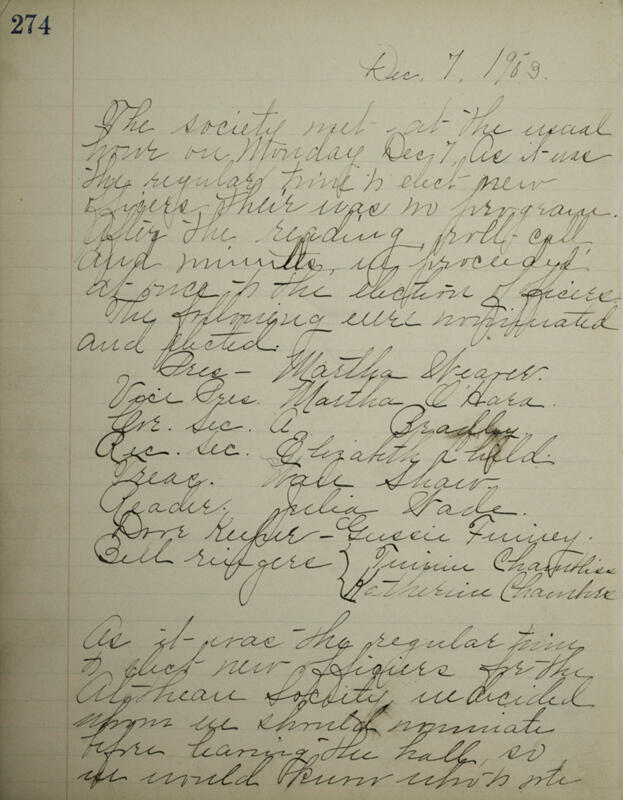 274
Dec. 7, 1903.
The society met at the usual
hour on Monday Dec 7, As it was
the regular time to elect new
officers their was no program.
After the reading, roll-call
and minutes, we proceeded
at once to the election officers.
The following were nominated
and elected:
Pres- Martha Weaver.
Vice Pres. Martha O'Hara.
Cor. Sec. A. Bradley
Rec. Sec. Elizabeth Child.
Treas. Shaw
Reader. Julia Wade.
Door Keeper - Gussie Finney.
Bell ringers { Chambliss
Katherine Chambers
As it was the regular time
to elect new officiers for the
Society, we decided
whom we should nominate
before leaving the hall, so
we would know who to vote